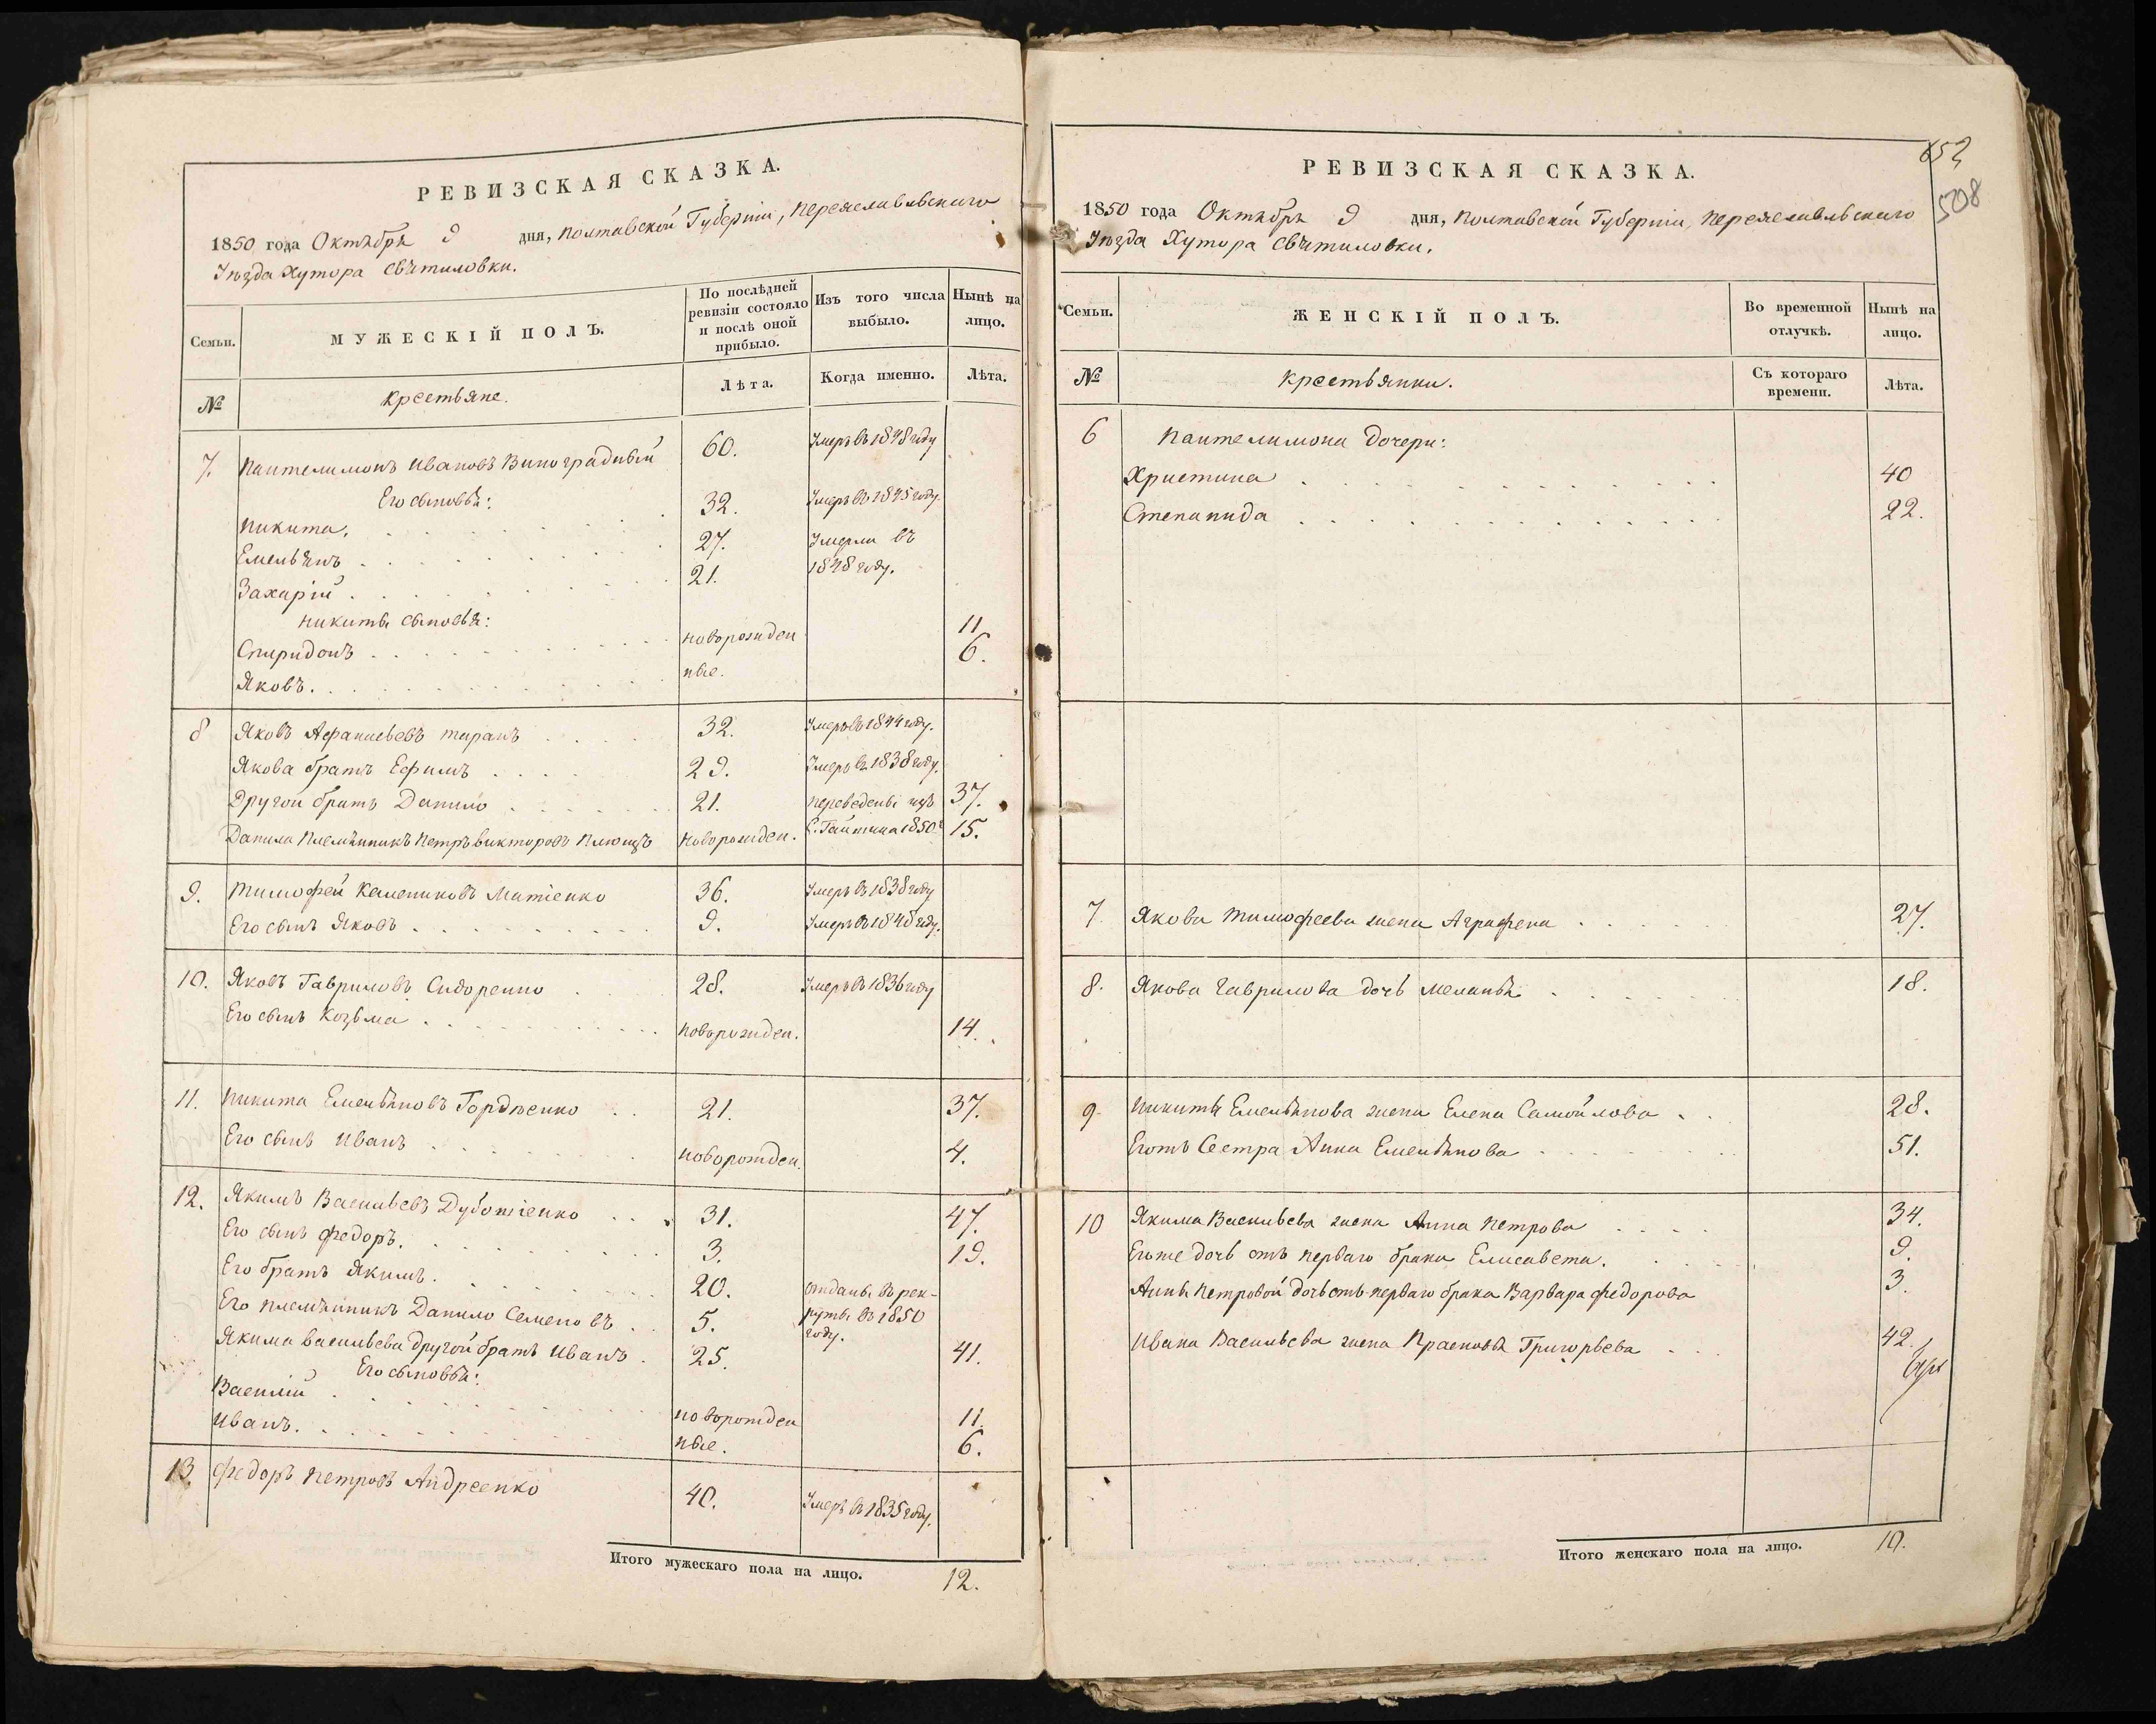 РЕВИЗСКАЯ СКАЗКА.
1850 года Октября 9 дня, Полтавской Губерніи, Переяславльскаго
Уѣзда Хутора Свѣтиловки.
Семьи.
МУЖЕСКІЙ ПОЛЪ.
По послѣдней ревизіи состояло и послѣ оной прибыло.
Изъ того числа выбыло.
Нынѣ на лицо.
№
Крестьяне.
Лѣта.
Когда именно.
Лѣта.
7. Пантелимонъ Ивановъ Виноградный 60. Умеръ въ 1848 году
Его сыновья:
Никита. 32. Умеръ въ 1845 году.
Емельянъ 27. Умерли въ
Захарій 21. 1848 году.
Никиты сыновья:
Спиридонъ новорожден 11
Яковъ. ные. 6.
8 Яковъ Афанасьевъ 32. Умеръ въ 1844 году.
Якова братъ Ефимъ 29. Умеръ въ 1838 году.
Другой братъ Данило 21. переведены изъ 37.
Данила племянникъ Петръ Викторовъ новорожден. 1850 15.
9. Тимофей Калениковъ Матіенко 36. Умеръ въ 1838 году
Его сынъ Яковъ 9. Умеръ въ 1848 году.
10. Яковъ Гавриловъ Сидоренко 28. Умеръ въ 1836 году
Его сынъ Козьма новорожден. 14.
11. Никита Емельяновъ Гордѣенко 21. 37.
Его сынъ Иванъ новорожден. 4.
12. Якимъ Васильевъ 31. 47.
Его сынъ Федоръ. 3. 19.
Его братъ Якимъ. 20. отданы въ рек-
Его племянникъ Данило Семеновъ 5. руты въ 1850
году.
Якима Васильева другой братъ Иванъ 25. 41.
Его сыновья:
Василій новорожден 11.
Иванъ. ные. 6.
13 Федоръ Петровъ Андреенко 40. Умеръ въ 1835 году.
Итого мужескаго пола на лицо. 12.
652
508
РЕВИЗСКАЯ СКАЗКА.
1850 года Октября 9 дня, Полтавской Губерніи, Переяславльскаго
Уѣзда Хутора Свѣтиловки.
Семьи.
ЖЕНСКІЙ ПОЛЪ.
Во временной отлучкѣ.
Нынѣ на лицо.
№
Крестьянки.
Съ котораго времени.
Лѣта.
6 Пантелимона дочери:
Христина 40
Степанида 22.
7. Якова Тимофеева жена Аграфена 27.
8. Якова Гаврилова дочь Меланья 18.
9. Никиты Емельянова жена Елена Самойлова 28.
Егожъ Сестра Анна Емельянова 51.
10 Якима Васильева жена Анна Петрова 34.
Егоже дочь отъ перваго брака Елисавета. 9.
Анны Петровой дочь отъ перваго брака Варвара Федорова 3.
Ивана Васильева жена Прасковья Григорьева 42.
Итого женскаго пола на лицо. 10.